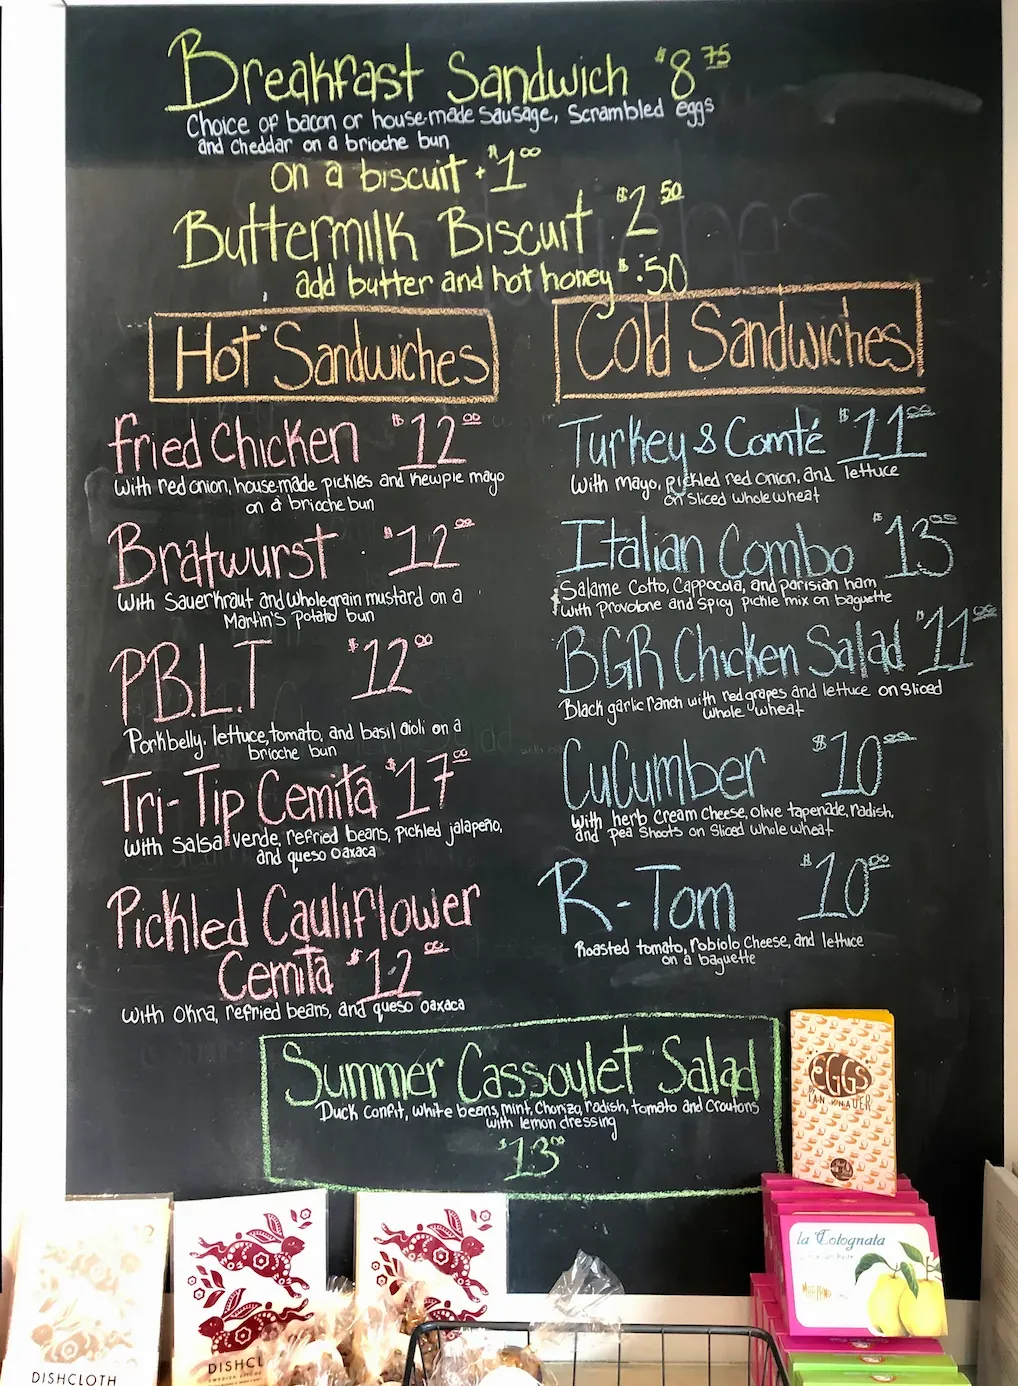 Breakfast Sandwich $8 75
Choice of bacon or house-made Sausage, Scrambled eggs
and Cheddar on a brioche bun
on a biscuit + $1 00
Buttermilk Biscuit $2 50
add butter and hot honey $.50
Hot Sandwiches
Fried Chicken $12 00
With red onion, house-made pickles and Kewpie mayo
on a brioche bun
Bratwurst $12 00
With Sauerkraut and whole-grain mustard on a
Martin's Potato bun
P.B.L.T $12 00
Porkbelly, lettuce, tomato, and basil aioli on a
brioche bun
Tri-Tip Cemita $17 00
With Salsa verde, refried beans, pickled jalapeño,
and queso Oaxaca
Pickled Cauliflower
Cemita $12 00
With Okra, refried beans, and queso Oaxaca
Cold Sandwiches
Turkey & Comté $11 00
With mayo, pickled red onion, and lettuce
on Sliced whole wheat
Italian Combo $13 00
Salame Cotto, Cappocola, and parisian ham
with Provolone and Spicy pickle mix on baguette
BGR Chicken Salad $11 00
Black garlic ranch with red grapes and lettuce on Sliced
whole wheat
CuCumber $10 00
With herb Cream Cheese, olive tapenade, radish,
and Pea Shoots on Sliced whole wheat
R-Tom $10 00
Roasted tomato, robiolo Cheese, and lettuce
on a baguette
Summer Cassoulet Salad
Duck Confit, white beans, mint, Chorizo, radish, tomato and Croutons
with lemon dressing
$13 00
EGGS
la Cotognata
DISHCLOTH
DISHCL